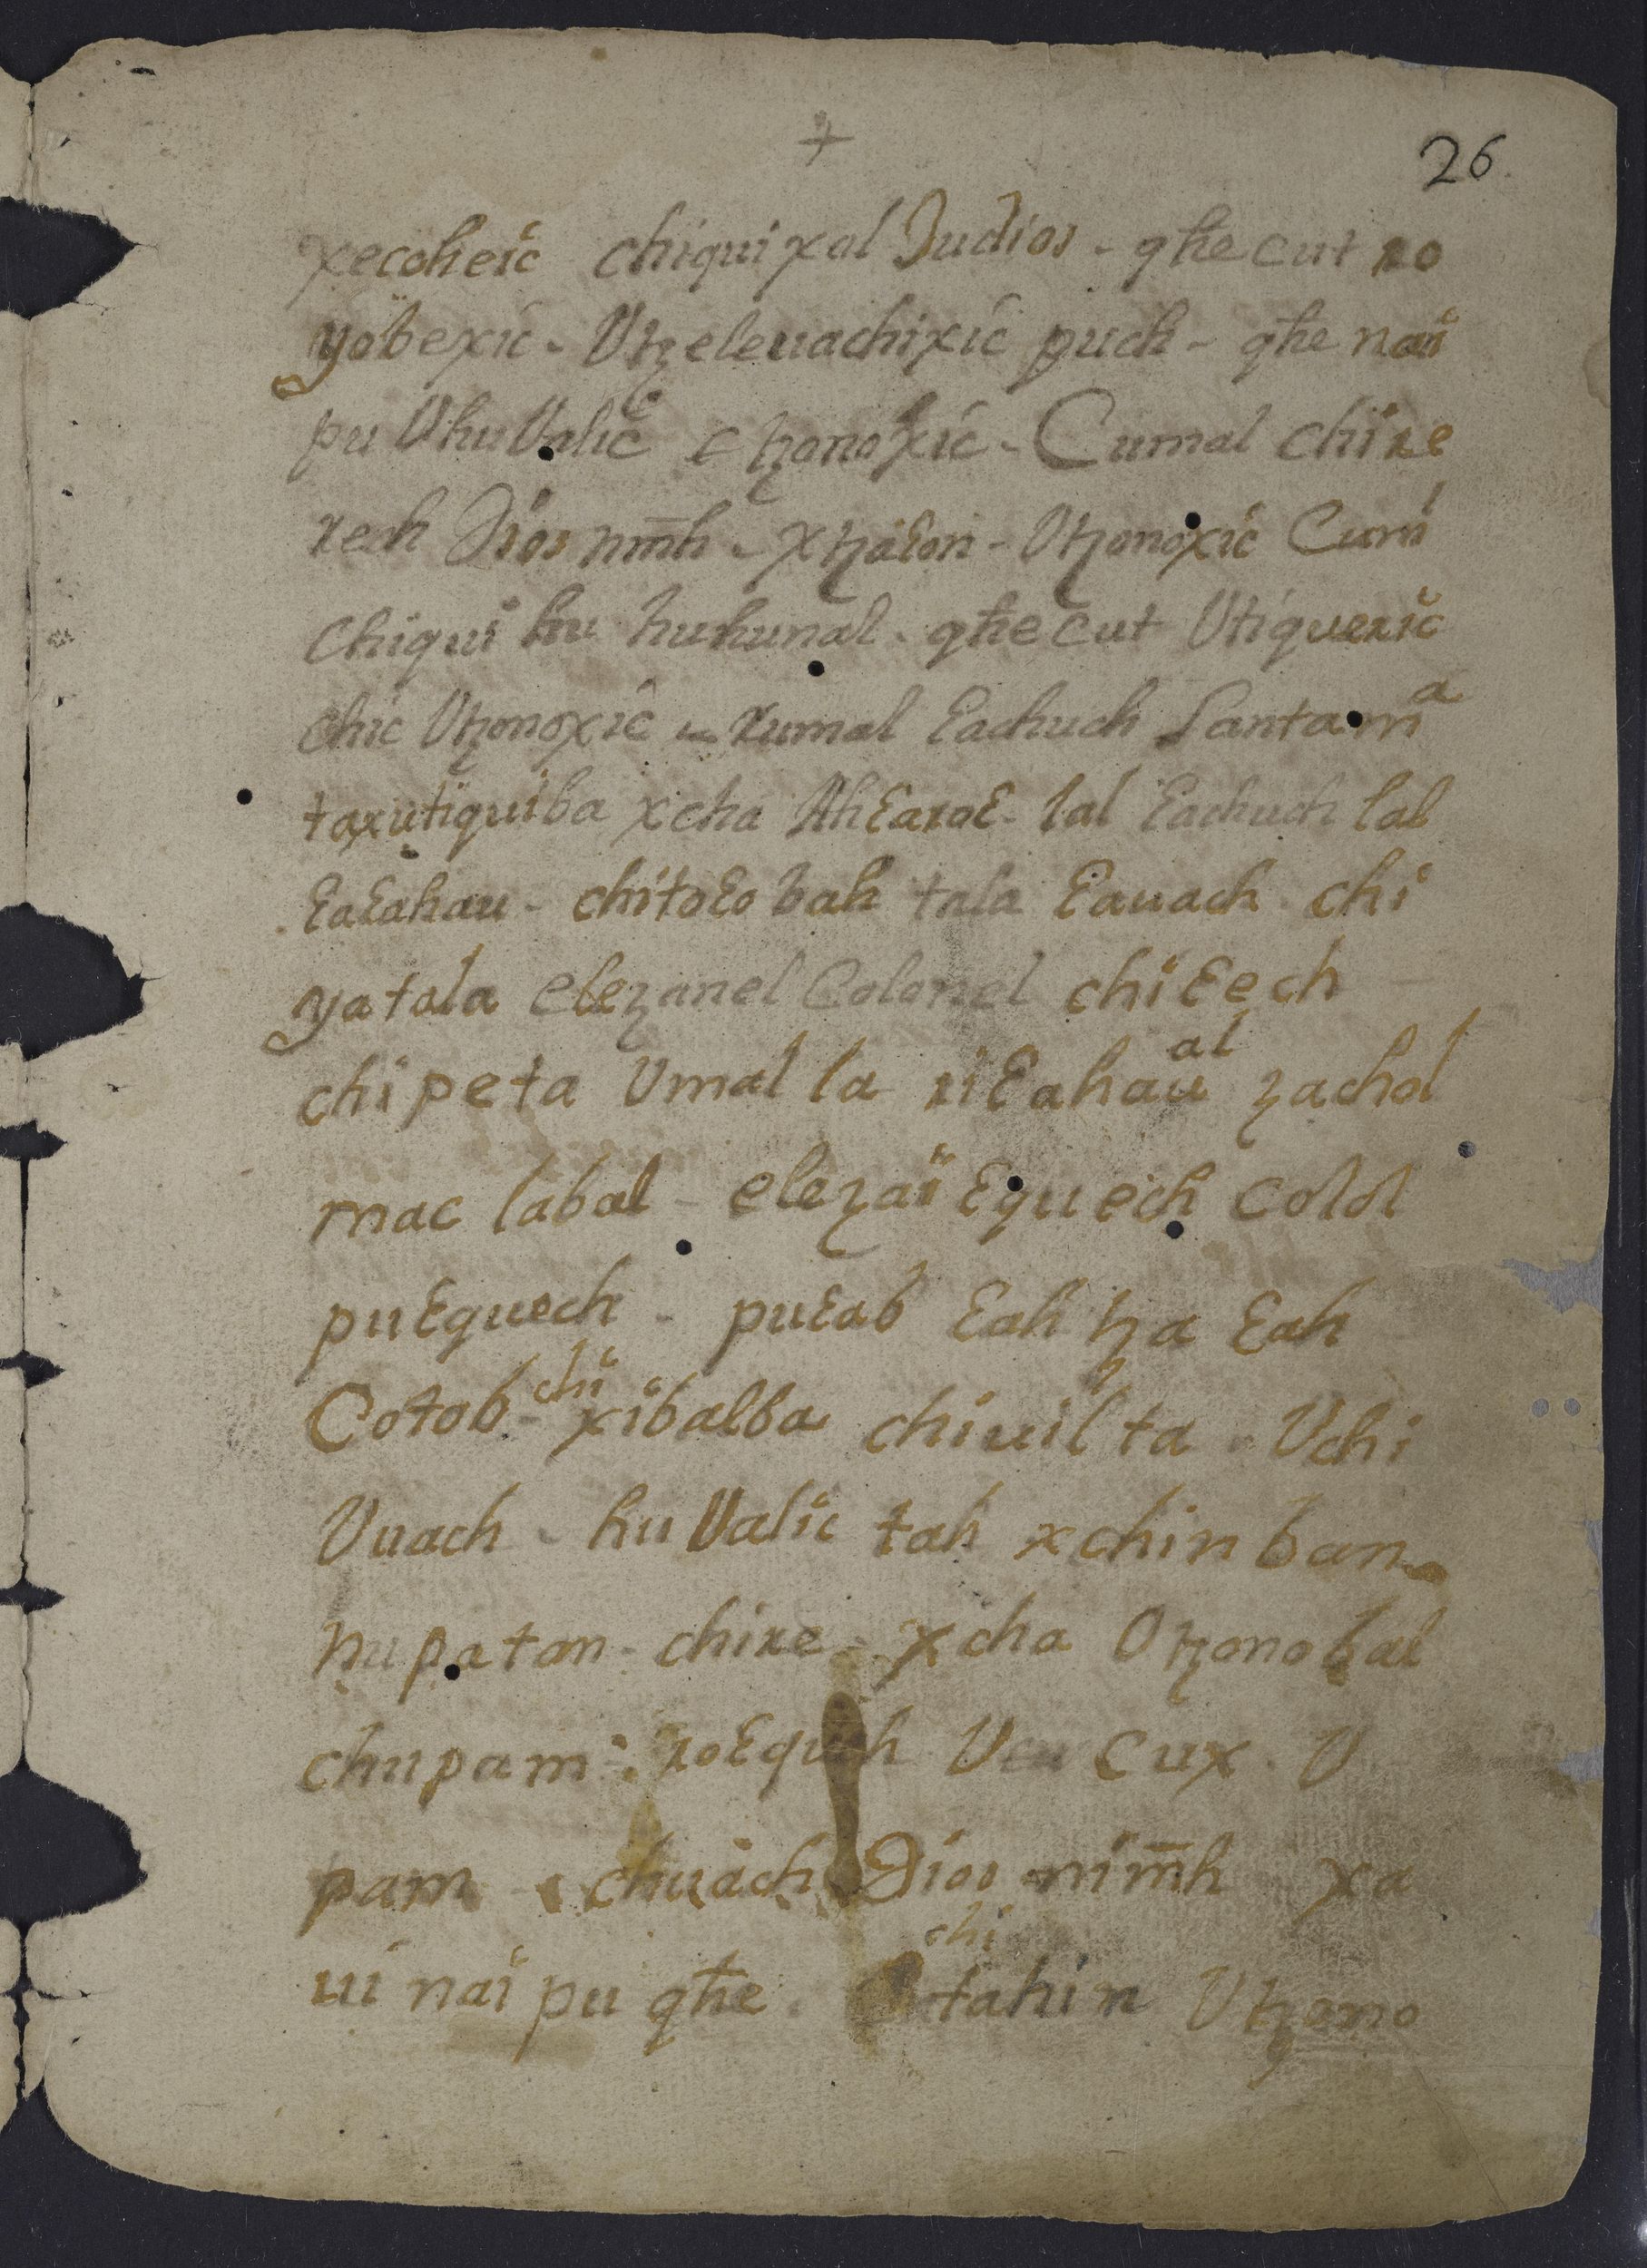 +
26
xecoheic chiquixol Judios - qħe cut ro
yobexic - Vtzeleuachixic puch - qħe naï
pu Vhu Valic c tzonoxic - Cumal chire
rech Dios nm̄h - xtzaɛon - Vtzonoxic Cuml
chiqui hu huhunal - qħe cut Vtiqueric
chic Vtzonoxic - rumal ɛachuch Santa mᵃ
taxutiquiba xcha Ahɛaroɛ - lal ɛachuch lal
ɛaɛahau - chitoɛobah tala ɛauach chi
yatala elezanel Colonel chiɛech
chipeta Vmal la riɛahaual zachol
mac labal - elezaï ɛquech Colol
puɛquech - puɛab ɛah tza ɛah
Cotob - chi xibalba chiuil ta - Vchi
Vuach - hu Valic tah xchinban
nupatan - chire - xcha Otzonobal
chupam roɛquch V cux V
pam chuach Dios nim̄h xa
ui naï pu qħe chi tahin Vtzono